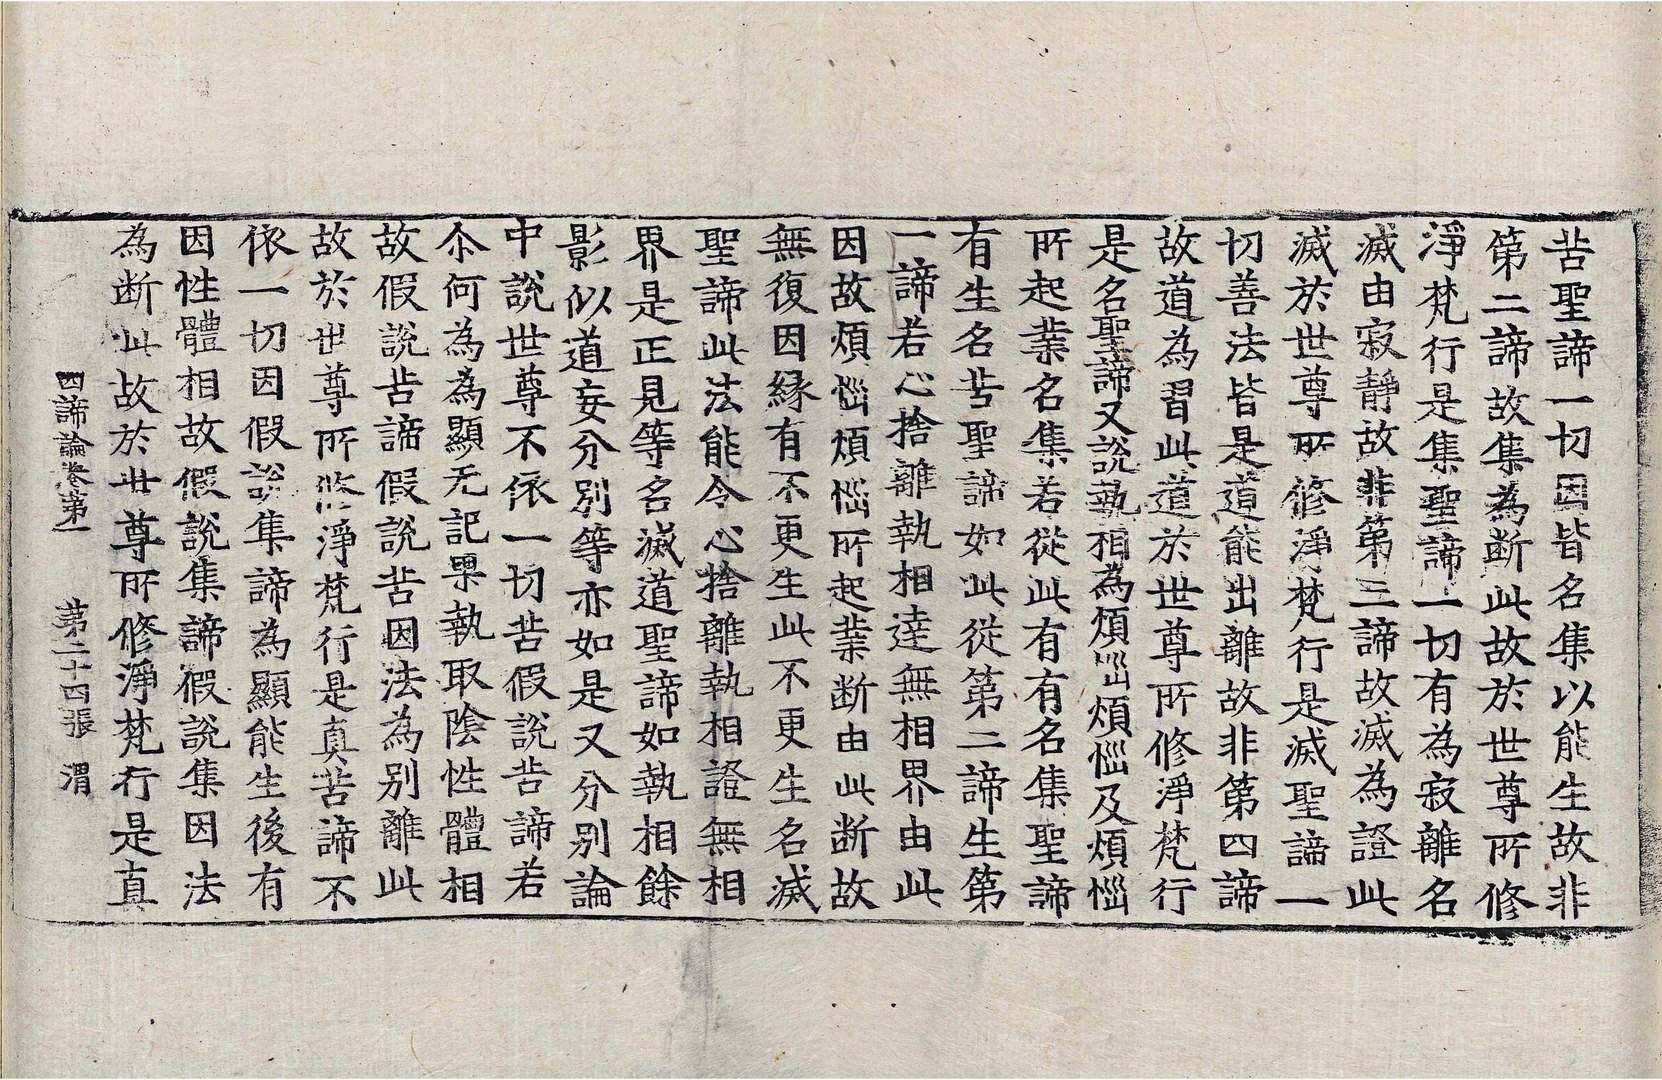 苦聖諦一切因皆名集以能生故非
第二諦故集為断此故於世尊所修
淨梵行是集聖諦一切有為寂離名
滅由寂静故非第三諦故滅為證此
滅於世尊所修淨梵行是滅聖諦一
切善法皆是道能出離故非第四諦
故道為習此道於世尊所修淨梵行
是名聖諦又說執相為煩惱煩惱及煩惱
所起業名集若從此有有名集聖諦
有生名苦聖諦如此從第二諦生第
一諦若心捨離執相達無相界由此
因故煩惱煩惱所起業断由此断故
無復因縁有不更生此不更生名滅
聖諦此法能令心捨離執相證無相
界是正見等名滅道聖諦如執相餘
影似道妄分別等亦如是又分別論
中說世尊不依一切苦假說苦諦若
尒何為為顯无記果執取陰性體相
故假說苦諦假說苦因法為別離此
故於世尊所修淨梵行是真苦諦不
依一切因假說集諦為顯能生後有
因性體相故假說集諦假說集因法
為断此故於世尊所修淨梵行是真
四諦論卷第一 第二十四張 渭